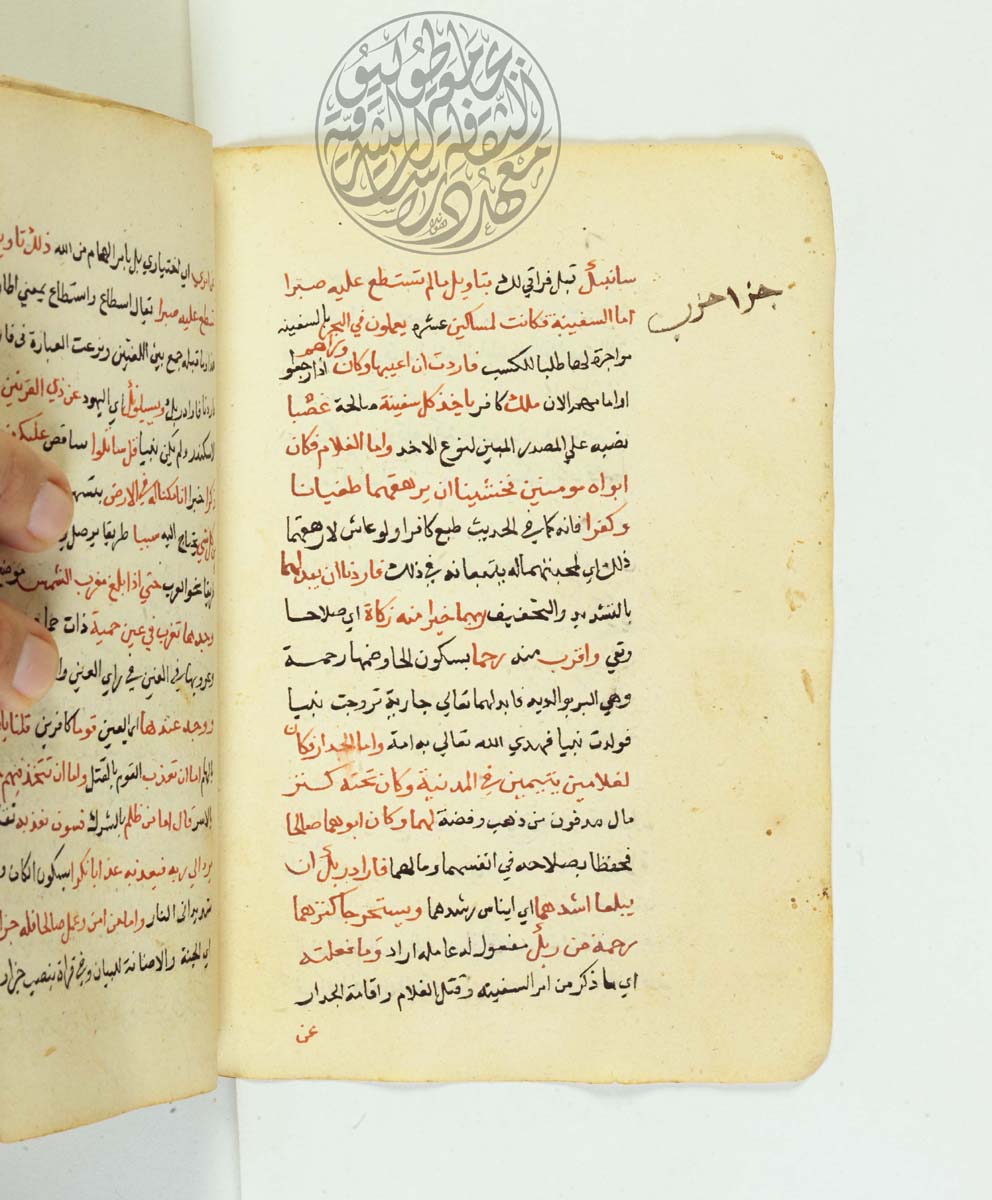 سانبئك قبل فراقي لك بتاويل مالم تستطع عليه صبرا
اما السفينة فكانت لمساكين عشره يعملون في البحر بالسفينه
مواجرة لها طلبا للكسب فاردت ان اعيبها وكان وراهم اذا رجعوا
او امامهم الان ملك كافر ياخذ كل سفينة صالحة غصبا
نصبه علي المصدر المبين لنوع الاخذ واما الغلام فكان
ابواه مومنين فخشينا ان يرهقهما طغيانا
وكفرا فانه كما في الحديث طبع كافرا ولو عاش لارهقهما
ذلك اي لمحبتهما له يتبعانه في ذلك فاردنا ان يبدلهما
بالتشديد والتخفيف ربهما خيرا منه زكاة اي صلاحا
وتقي واقرب منه رحما بسكون الحا وضمها رحمة
وهي البر بوالديه فابدلهما تعالي جارية تزوجت نبيا
فولدت نبيا فهدي الله تعالي به امة واما الجدار فكان
لغلامين يتيمين في المدينة وكان تحته كنز
مال مدفون من ذهب وفضة لهما وكان ابوهما صالحا
فحفظا بصلاحه في انفسهما ومالهما فاراد ربك ان
يبلغا اشدهما اي ايناس رشدهما ويستخرجا كنزهما
رحمة من ربك مفعول له عامله اراد وما فعلته
اي ما ذكر من امر السفينه وقتل الغلام واقامة الجدار
عن
جزا حزب
اي اختياري بل بامر الهام من الله ذلك
تسطع عليه صبرا يقال اسطاع واستطاع بمعني
قبله جمع بين اللغتين ونوعت العبارة في
فاراد ربك ويسيلونك اي اليهود عن ذي القرنين
ولم يكن نبيا قل ساتلوا ساقص عليكم
خبرا انا مكنا له في الارض
يحتاج اليه سببا طريقا يوصل
نحو الغرب حتي اذا بلغ مغرب الشمس
وجدها تغرب في عين حمية ذات
وغروبها في العين في راي العين
ووجد عندها اي العين قوما كافرين قلنا
اما ان تعذب القوم بالقتل واما ان تتخذ فيهم
قال اما من ظلم بالشرك فسوف نعذبه
يرد الي ربه فيعذبه عذابا نكرا بسكون الكاف
النار واما من امن وعمل صالحا فله جزا
اي الجنة والاضافة للبيان وفي قراة بنصب جزا